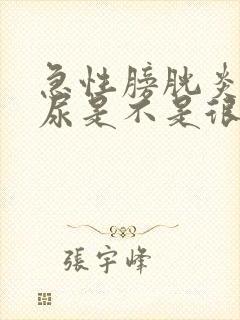 急性膀胱炎
尿是不是很
張宇峰